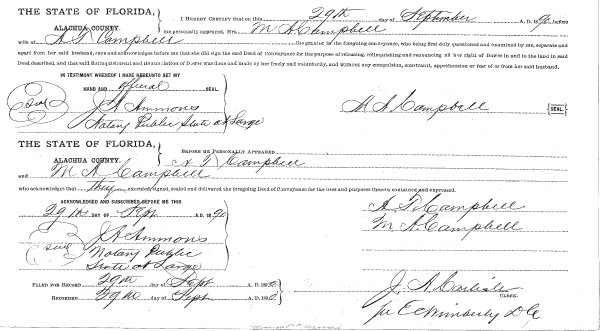 THE STATE OF FLORIDA,
ALACHUA COUNTY.
I HEREBY CERTIFY that on this 29th day of September A. D. 1890 before
me personally appeared, Mrs. M A Campbell
wife of A T Campbell the grantor to the foregoing conveyance, who being first duly questioned and examined by me, separate and
apart from her said husband, and acknowledges before me that she did sign the said Deed of Conveyance for the purpose of releasing, relinquishing and renouncing all her right of Dower in and to the land in said
Deed described, and that said Relinquishment and Renunciation of Dower was done and made by her freely and voluntarily, and without any compulsion, constraint, apprehension or fear of or from her said husband.
IN TESTIMONY WHEREOF I HAVE HEREUNTO SET MY
HAND AND official SEAL.
Seal
J A Ammons
Notary Public State at Large
M A Campbell
SEAL
THE STATE OF FLORIDA,
ALACHUA COUNTY.
BEFORE ME PERSONALLY APPEARED
A T Campbell
and M A Campbell
who acknowledge that they executed, signed, sealed and delivered the foregoing Deed of Conveyance for the uses and purposes therein contained and expressed.
ACKNOWLEDGED AND SUBSCRIBED BEFORE ME THIS
29th DAY OF Sept A.D. 1890
Seal
J A Ammons
Notary Public
State at Large
A T Campbell
M A Campbell
FILED FOR RECORD 29th day of Sept A. D. 1890
RECORDED 29th day of Sept A. D. 1890
J. A. Carlisle
CLERK.
per E C Wimberly D C